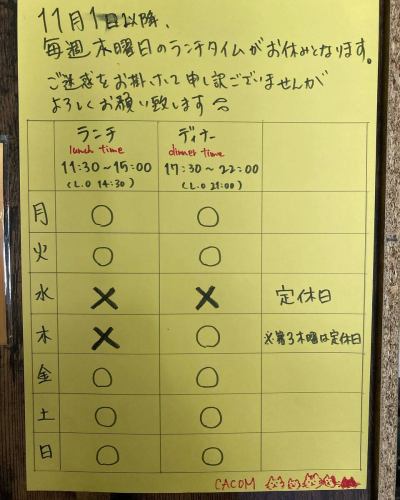 11月1日以降、
毎週木曜日のランチタイムがお休みとなります。
ご迷惑をお掛けして申し訳ございませんが
よろしくお願い致します
ランチ ディナー
lunch time dinner time
11:30~15:00 17:30~22:00
(L.O 14:30) (L.O 21:00)
月 ○ ○
火 ○ ○
水 × × 定休日
木 × ○ ※第3木曜は定休日
金 ○ ○
土 ○ ○
日 ○ ○
CACOM